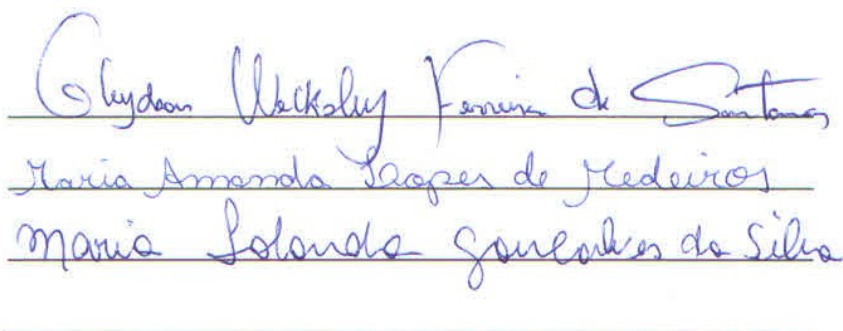 Gleydson Wecksley Ferreira de Santana
Maria Amanda Lopes de Medeiros
Maria Iolanda Gonçalves da Silva